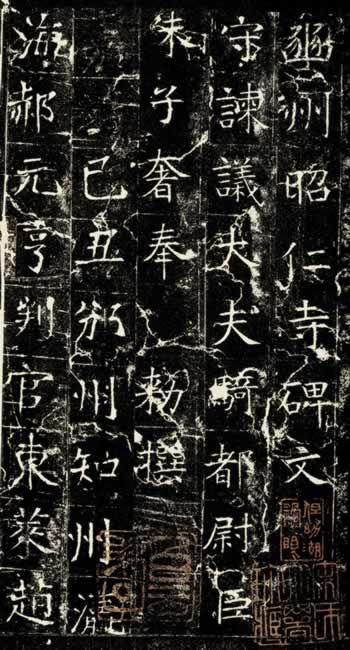 豳州昭仁寺碑文
守諫議大夫騎都尉臣
朱子奢奉 勑撰
己丑邠州知州滄
海郝元亨判官東萊趙